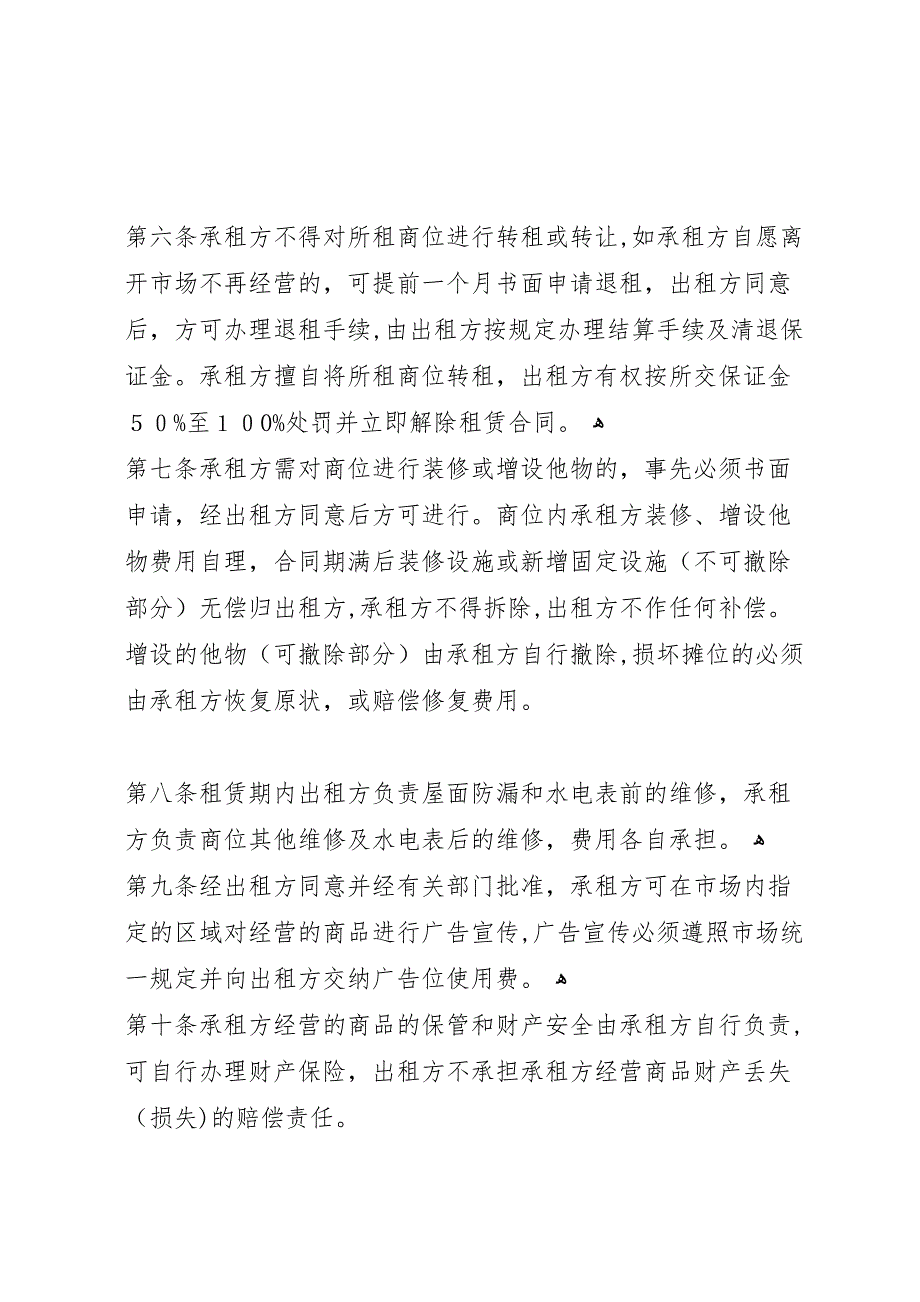 第六条承租方不得对所租商位进行转租或转让,如承租方自愿离
开市场不再经营的，可提前一个月书面申请退租，出租方同意
后，方可办理退租手续,由出租方按规定办理结算手续及清退保
证金。承租方擅自将所租商位转租，出租方有权按所交保证金
５0%至１００%处罚并立即解除租赁合同。 ﻫ
第七条承租方需对商位进行装修或增设他物的，事先必须书面
申请，经出租方同意后方可进行。商位内承租方装修、增设他
物费用自理，合同期满后装修设施或新增固定设施（不可撤除
部分）无偿归出租方,承租方不得拆除,出租方不作任何补偿。
增设的他物（可撤除部分）由承租方自行撤除,损坏摊位的必须
由承租方恢复原状，或赔偿修复费用。
第八条租赁期内出租方负责屋面防漏和水电表前的维修，承租
方负责商位其他维修及水电表后的维修，费用各自承担。 ﻫ
第九条经出租方同意并经有关部门批准，承租方可在市场内指
定的区域对经营的商品进行广告宣传,广告宣传必须遵照市场统
一规定并向出租方交纳广告位使用费。 ﻫ
第十条承租方经营的商品的保管和财产安全由承租方自行负责,
可自行办理财产保险，出租方不承担承租方经营商品财产丢失
（损失)的赔偿责任。